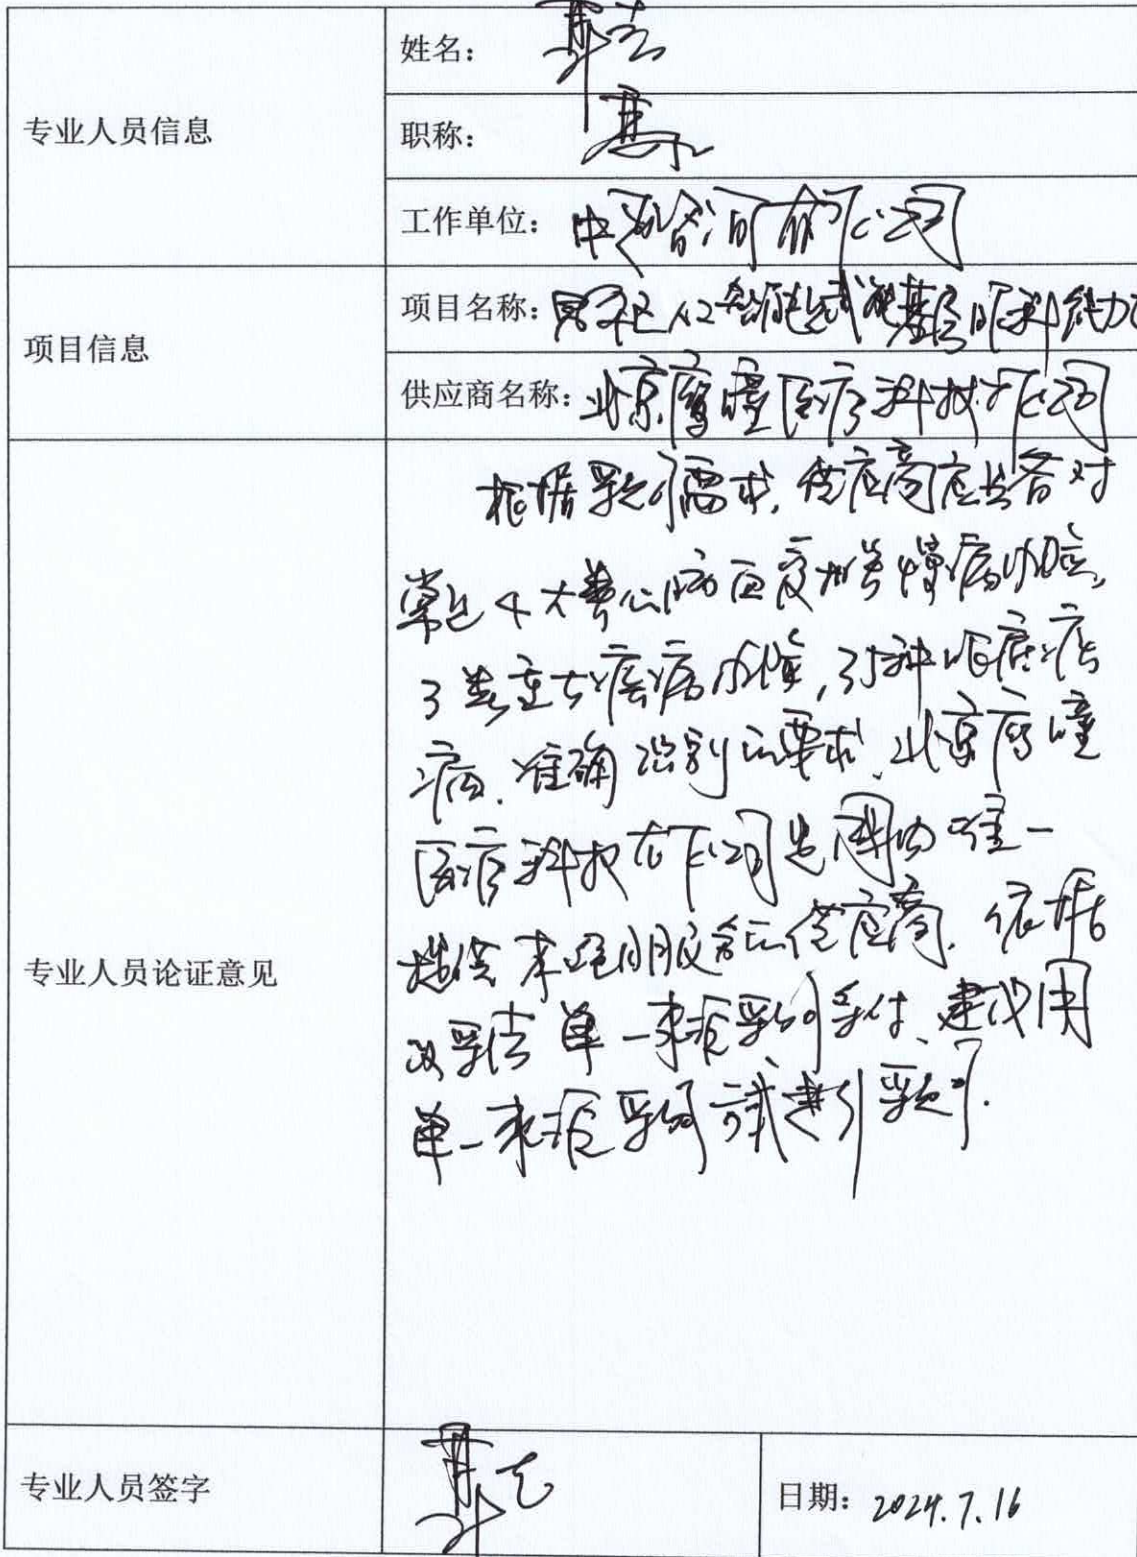 专业人员信息
姓名：
职称：高工
工作单位：中 咨询有限公司
项目信息
项目名称： 区人工智能 基层眼科能力
供应商名称：北京鹰瞳医疗科技有限公司
专业人员论证意见
根据采购需求，供应商应具备对
常见4大类 慢病 ，
3类重大疾病 ， 种眼底疾
病，准确识别的要求，北京鹰瞳
医疗科技有限公司是国内唯一
提供本项目服务的供应商，依据
政采法单一来源采购条件，建议用
单一来源采购方式进行采购。
专业人员签字
日期：2024.7.16